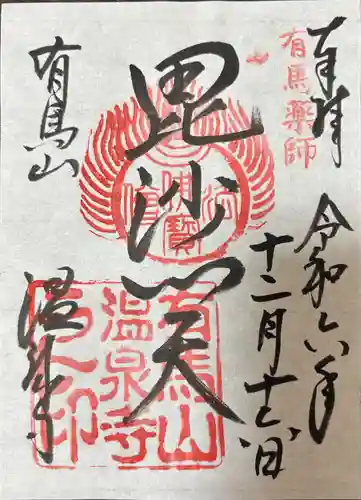 奉拝
有馬薬師
令和六年
十二月
毘沙門天
有馬山
温泉寺
有馬山
温泉寺
之印